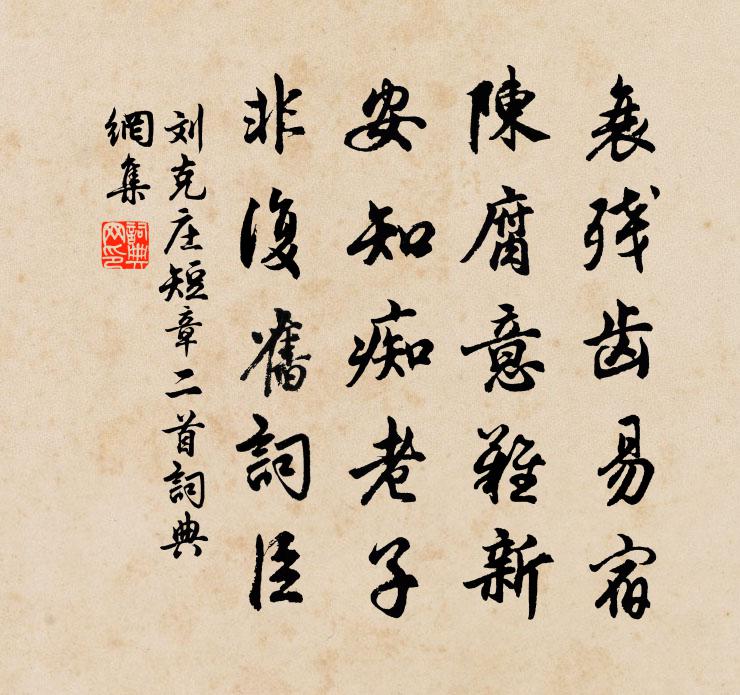 衰残齿易宿
陳腐意難新
安知痴老子
非復舊詞臣
刘克庄短章二首詞典
網集
詞典
网印